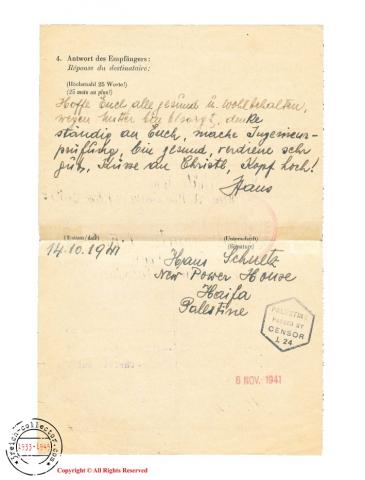 4. Antwort des Empfängers:
Réponse du destinataire:
(Höchstzahl 25 Worte!)
(25 mots au plus!)
Hoffe Euch alle gesund u. wohlbehalten,
wegen Mutter besorgt, denke
ständig an Euch, mache Ingenieur-
prüfung, bin gesund, verdiene sehr
gut, Küsse an Christl, Kopf hoch!
Hans
(Datum / date)
(Unterschrift)
(Signature)
14.10.1941
Hans Schultz
New Power House
Haifa
Palestine
PALESTINE
PASSED BY
CENSOR
L 24
6 NOV. 1941
3reich-collector.com
1933-1945
Copyright © All Rights Reserved